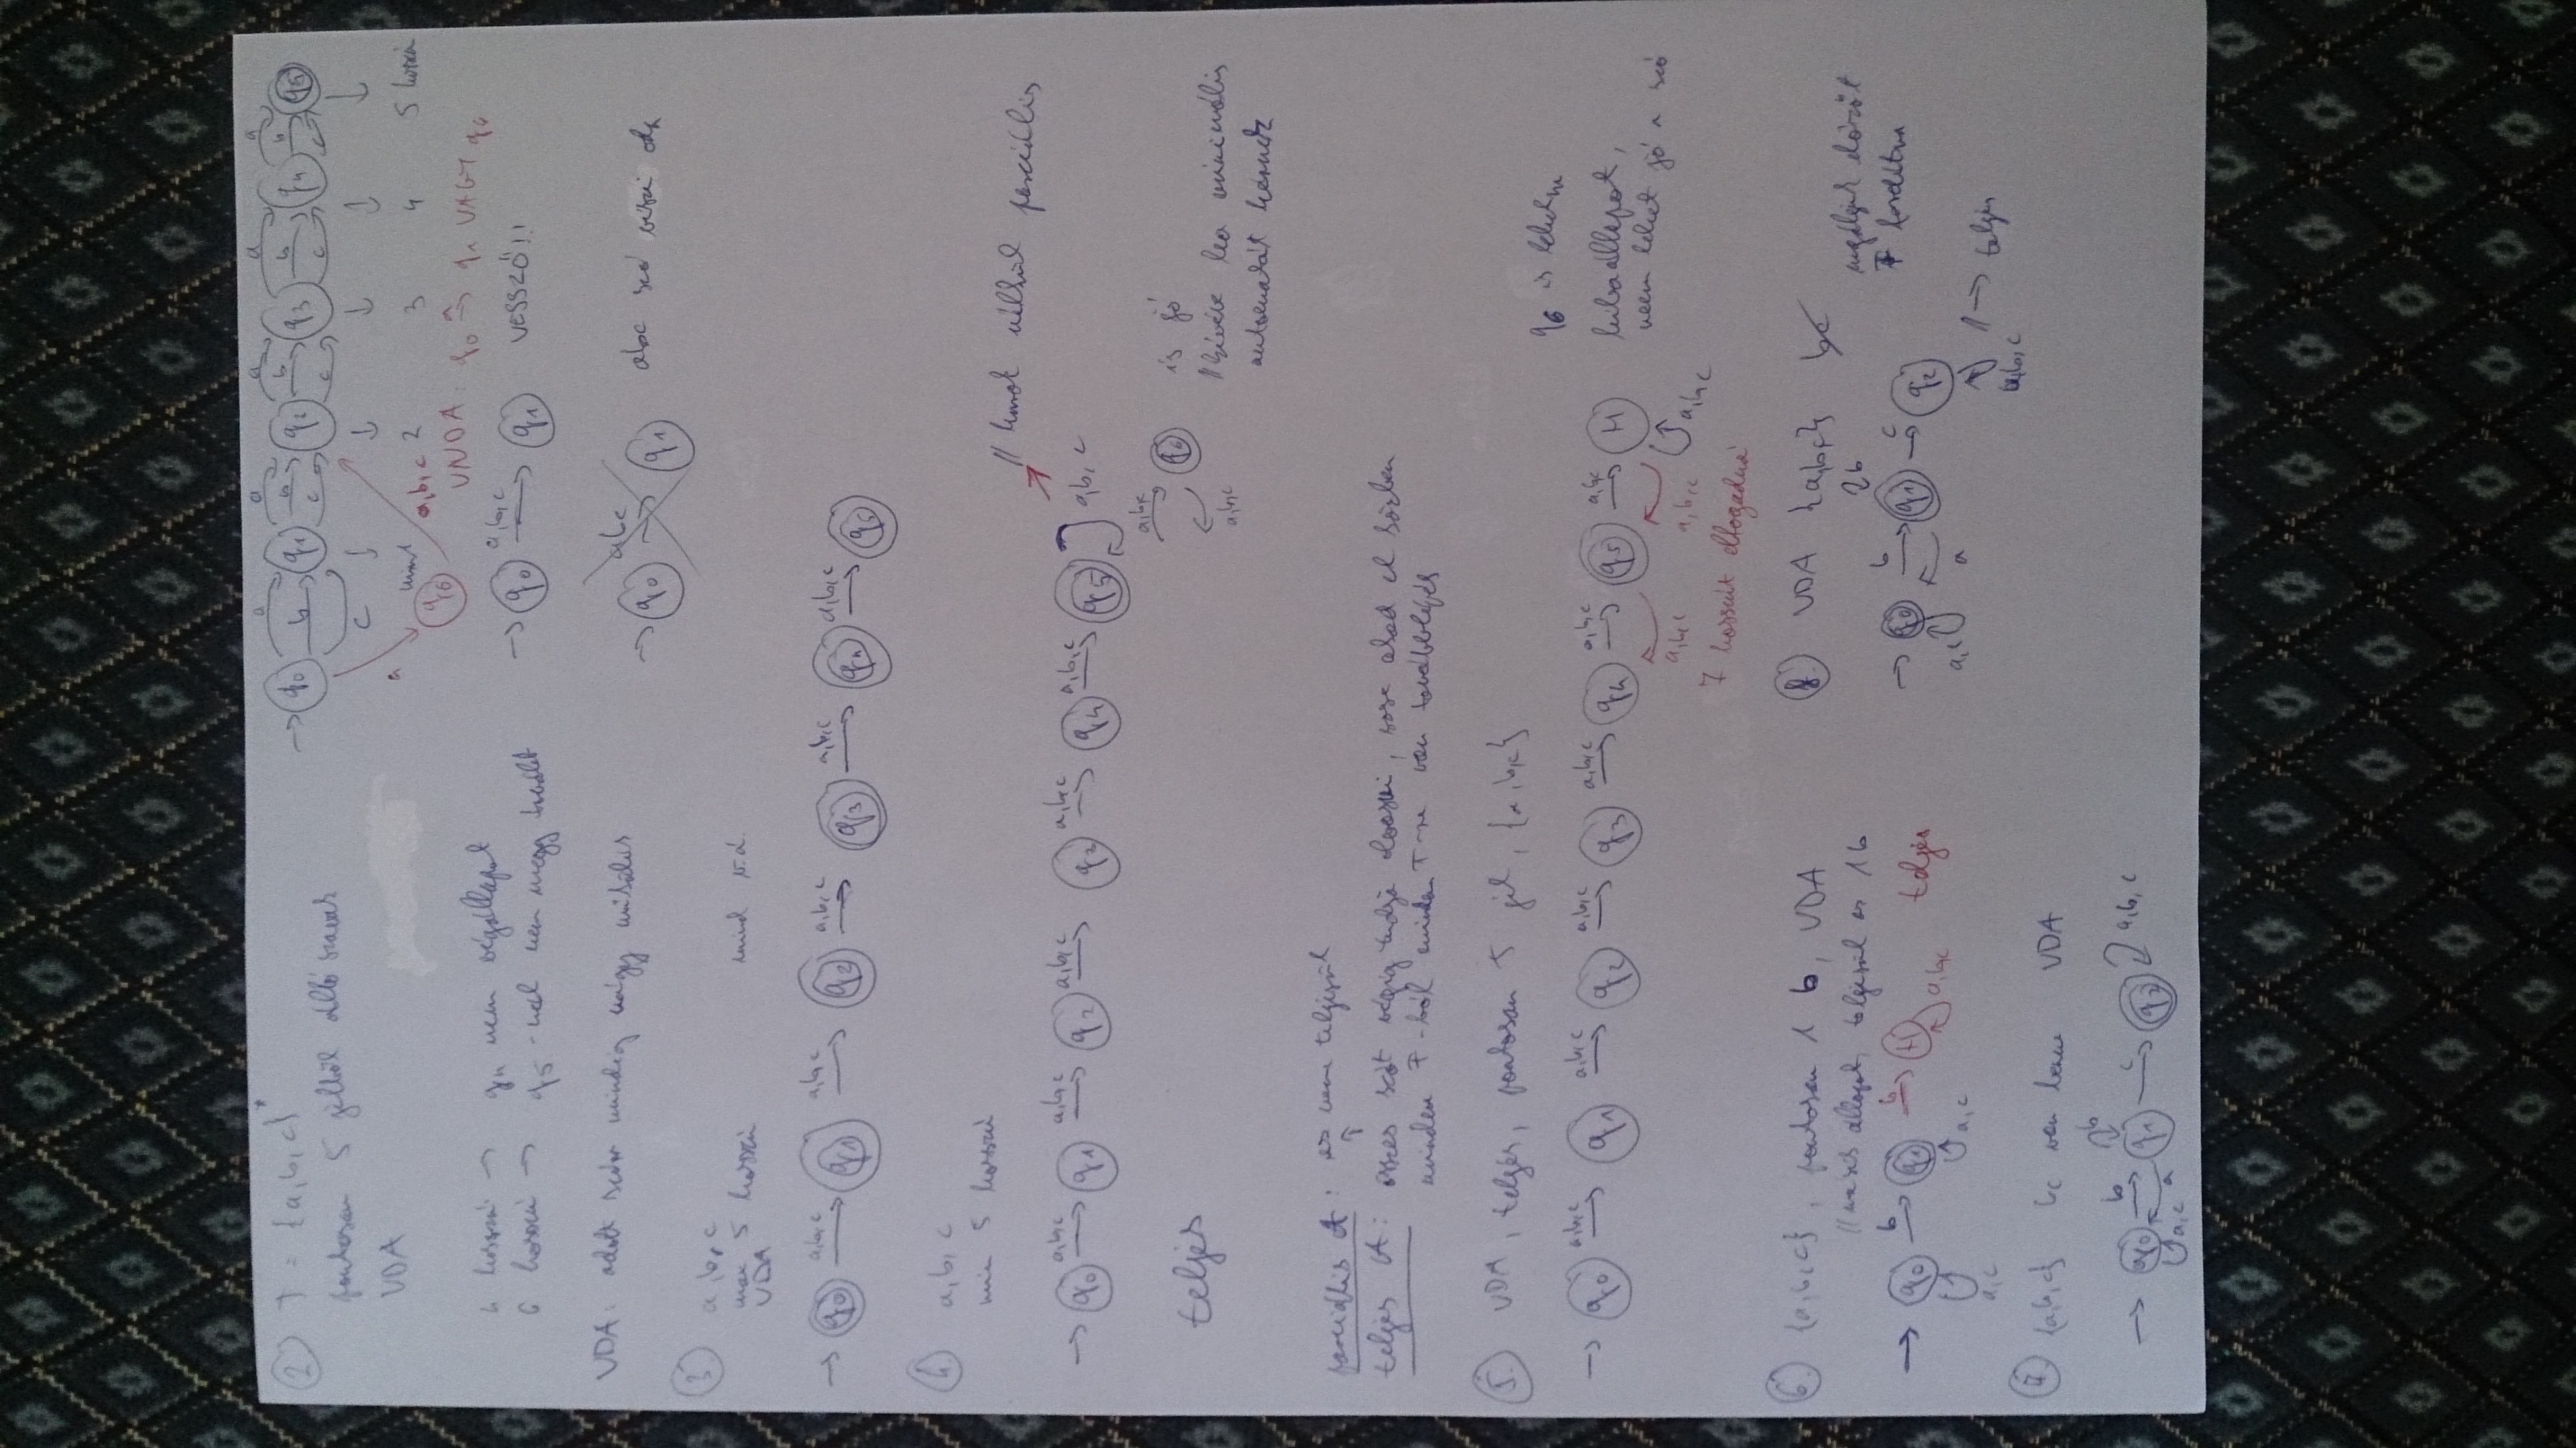 2. T = {a,b,c}*
pontosan 5 jelből álló szavak
VDA
→ q0 a b c q1 a b c q2 a b c q3 a b c q4 a b c q5
↓ ↓ ↓ ↓ ↓
2 3 4 5 hosszú
a q6 a,b,c
VNDA: q0 a→ q1 VAGY q6
4 hosszú → q4 nem végállapot
6 hosszú → q5-nél nem megy tovább
→ q0 a,b,c → q1 VESSZŐ!!
VDA: adott szóra mindig működés
→ q0 abc → q1 abc szó viszi oda
3. a,b,c
max 5 hosszú mind v.á.
VDA
→ q0 a,b,c → q1 a,b,c → q2 a,b,c → q3 a,b,c → q4 a,b,c → q5
4. a,b,c
min 5 hosszú
// hurok nélkül parciális
→ q0 a,b,c → q1 a,b,c → q2 a,b,c → q3 a,b,c → q4 a,b,c → q5 a,b,c
a,b,c → q6 is jó
a,b,c
// kivéve ha minimális
automatát kérnek
teljes
parciális A: ez nem teljesül
↑
teljes A: összes szót végig tudja olvasni, sose akad el közben
minden -ból minden T-re van továbblépés
5. VDA, teljes, pontosan 5 jel, {a,b,c}
→ q0 a,b,c → q1 a,b,c → q2 a,b,c → q3 a,b,c → q4 a,b,c → q5 a,b,c → H
a,b,c a,b,c a,b,c
7 hosszút elfogadná
q6 is lehetne
hibaállapot,
nem lehet jó a szó
6. {a,b,c}, pontosan 1 b, VDA
// másik állapot, teljesül az 1 b
→ q0 b → q1 b → H teljes
a,c a,c a,b,c
8. VDA {a,b,c} bc
→ q0 b → q1 c → q2
a,c a b a,b,c
előzőt
fordítva
→ teljes
7. {a,b,c} bc van benne VDA
→ q0 b → q1 c → q2 a,b,c
a,c a b